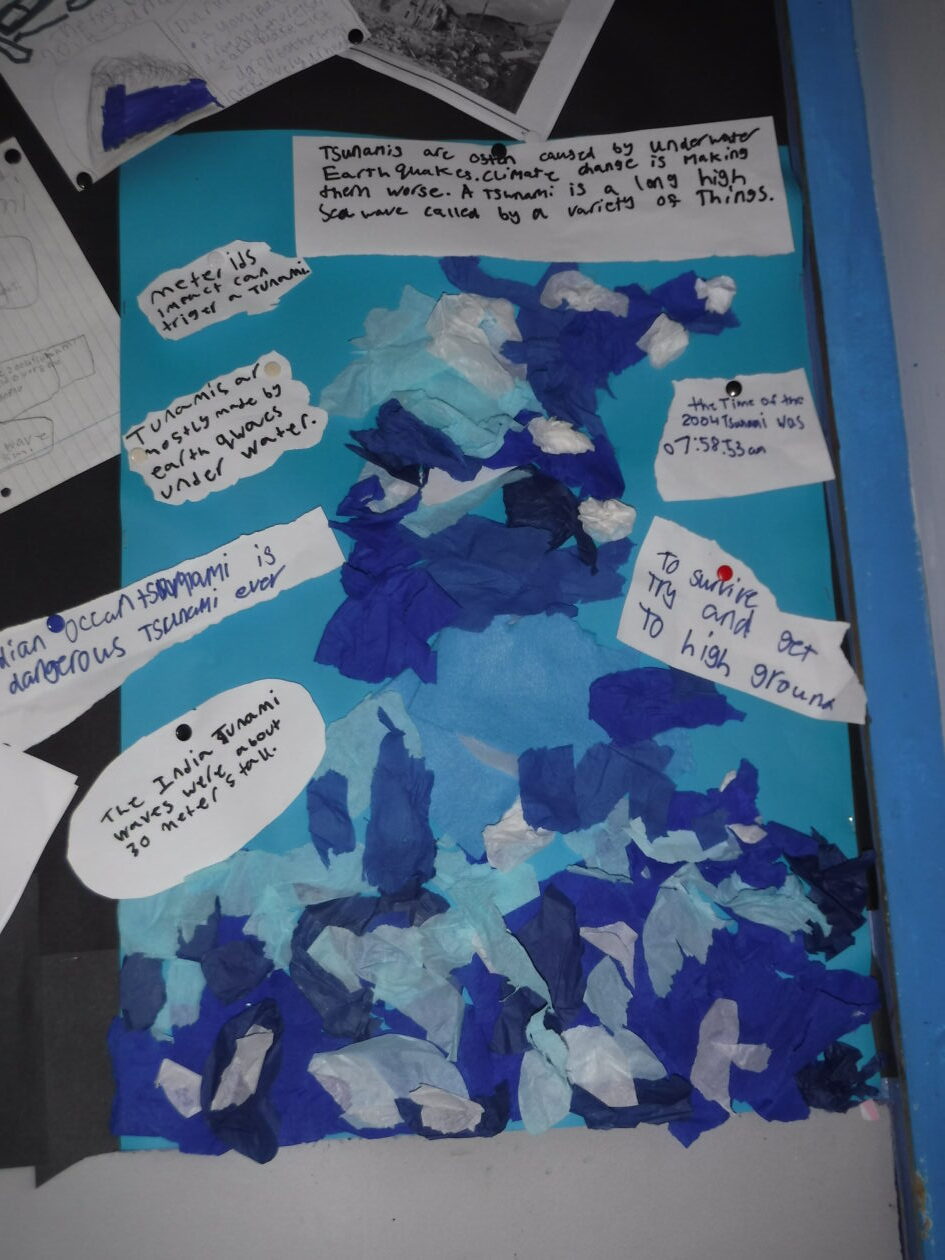 Tsunamis are osten caused by underwater
Earth quakes. climate change is making
them worse. A Tsunami is a long high
Sea wave called by a variety of Things.
meter ids
impact can
triger a Tunami
Tunamis ar
mostly made by
earth qwaves
under water.
the Time of the
2004 Tsunami was
07:58:53 am
dian occan tsunami is
dangerous Tsunami ever
To survive
Try and get
To high ground
The India Tunami
waves were about
30 meter's tall.